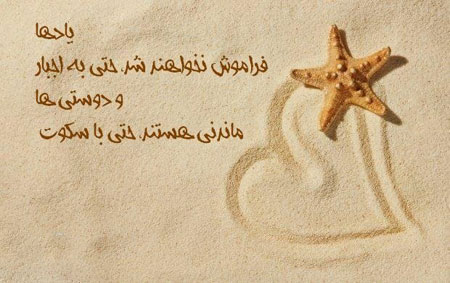 یادها
فراموش نخواهند شد، حتی به اجبار
و دوستی ها
ماندنی هستند، حتی با سکوت